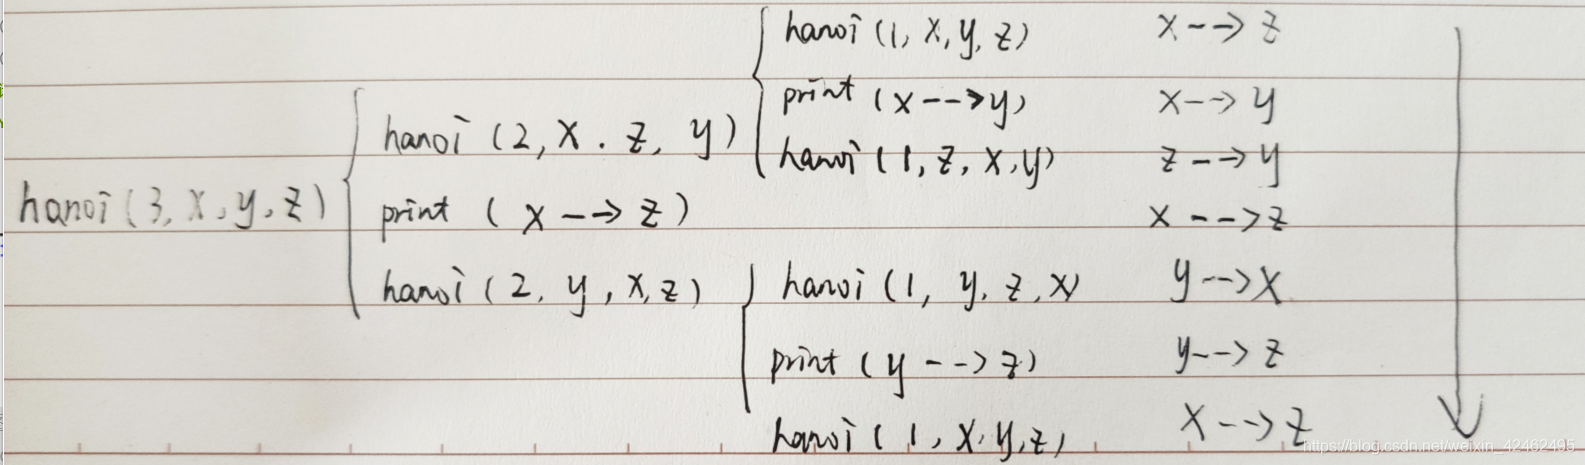 hanoi (1, x, y, z) x --> z
print (x --> y) x --> y
hanoi (2, x . z, y)
hanoi (1, z, x, y) z --> y
hanoi (3, x, y, z)
print ( x --> z ) x --> z
hanoi ( 2, y, x, z)
hanoi (1, y, z, x) y --> x
print (y --> z) y --> z
hanoi ( 1, x, y, z) x --> z
https://blog.csdn.net/weixin_42462495